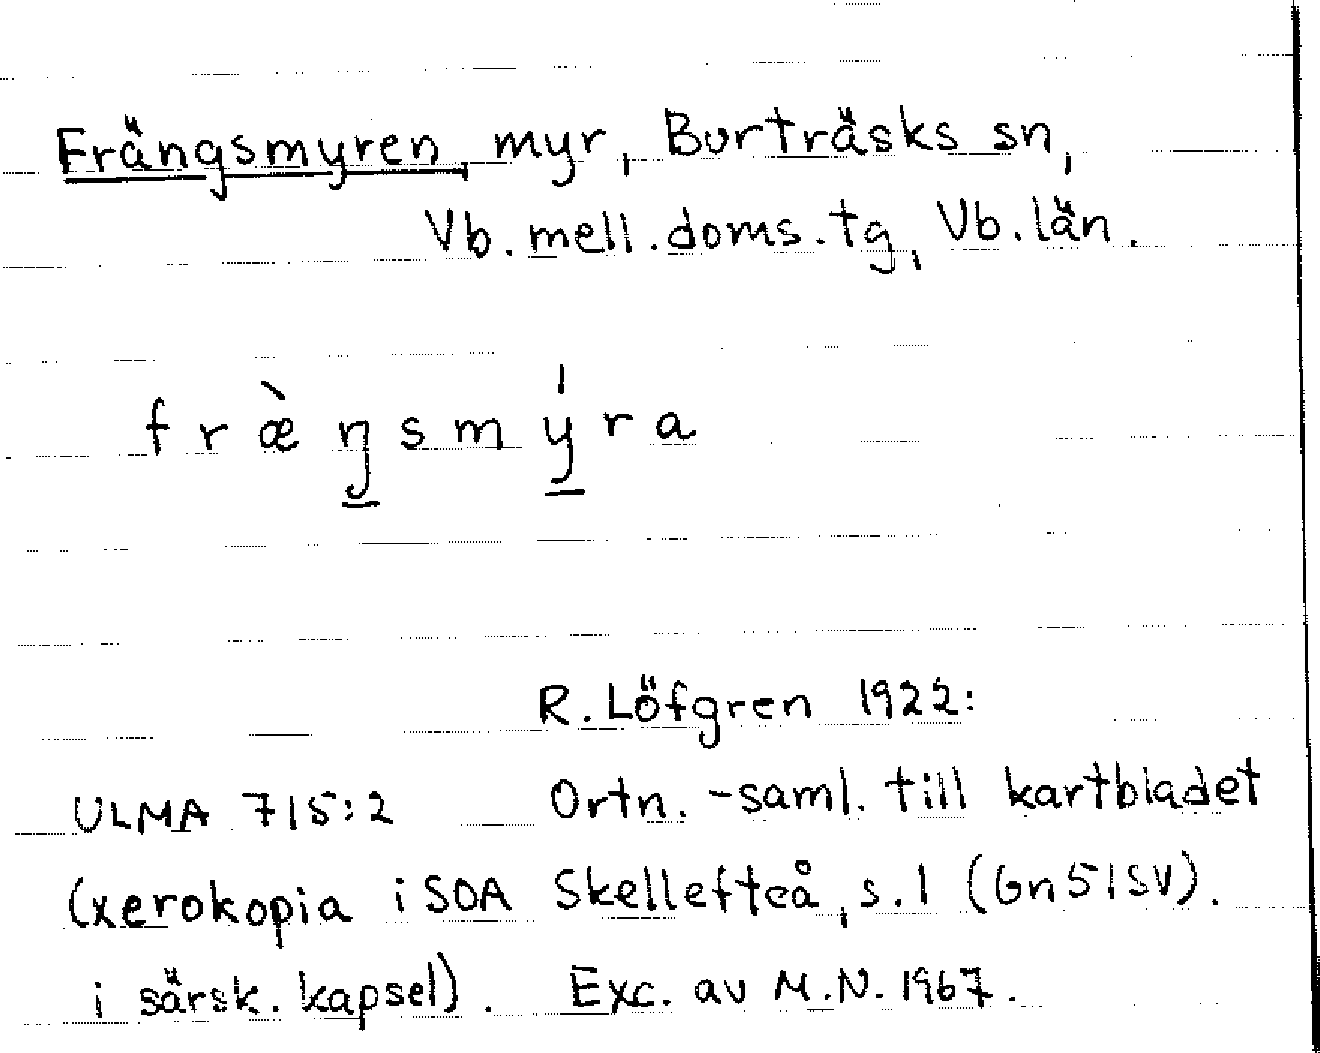 Frängsmyren, myr, Burträsks sn,
Vb. mell. doms. tg, Vb. län.
fræ̀ŋ̠smý̠ra
R. Löfgren 1922:
ULMA 715:2 Ortn. -saml. till kartbladet
(xerokopia i SOA Skellefteå, s. 1 (Gn 51 SV).
i särsk. kapsel). Exc. av M.N. 1967.